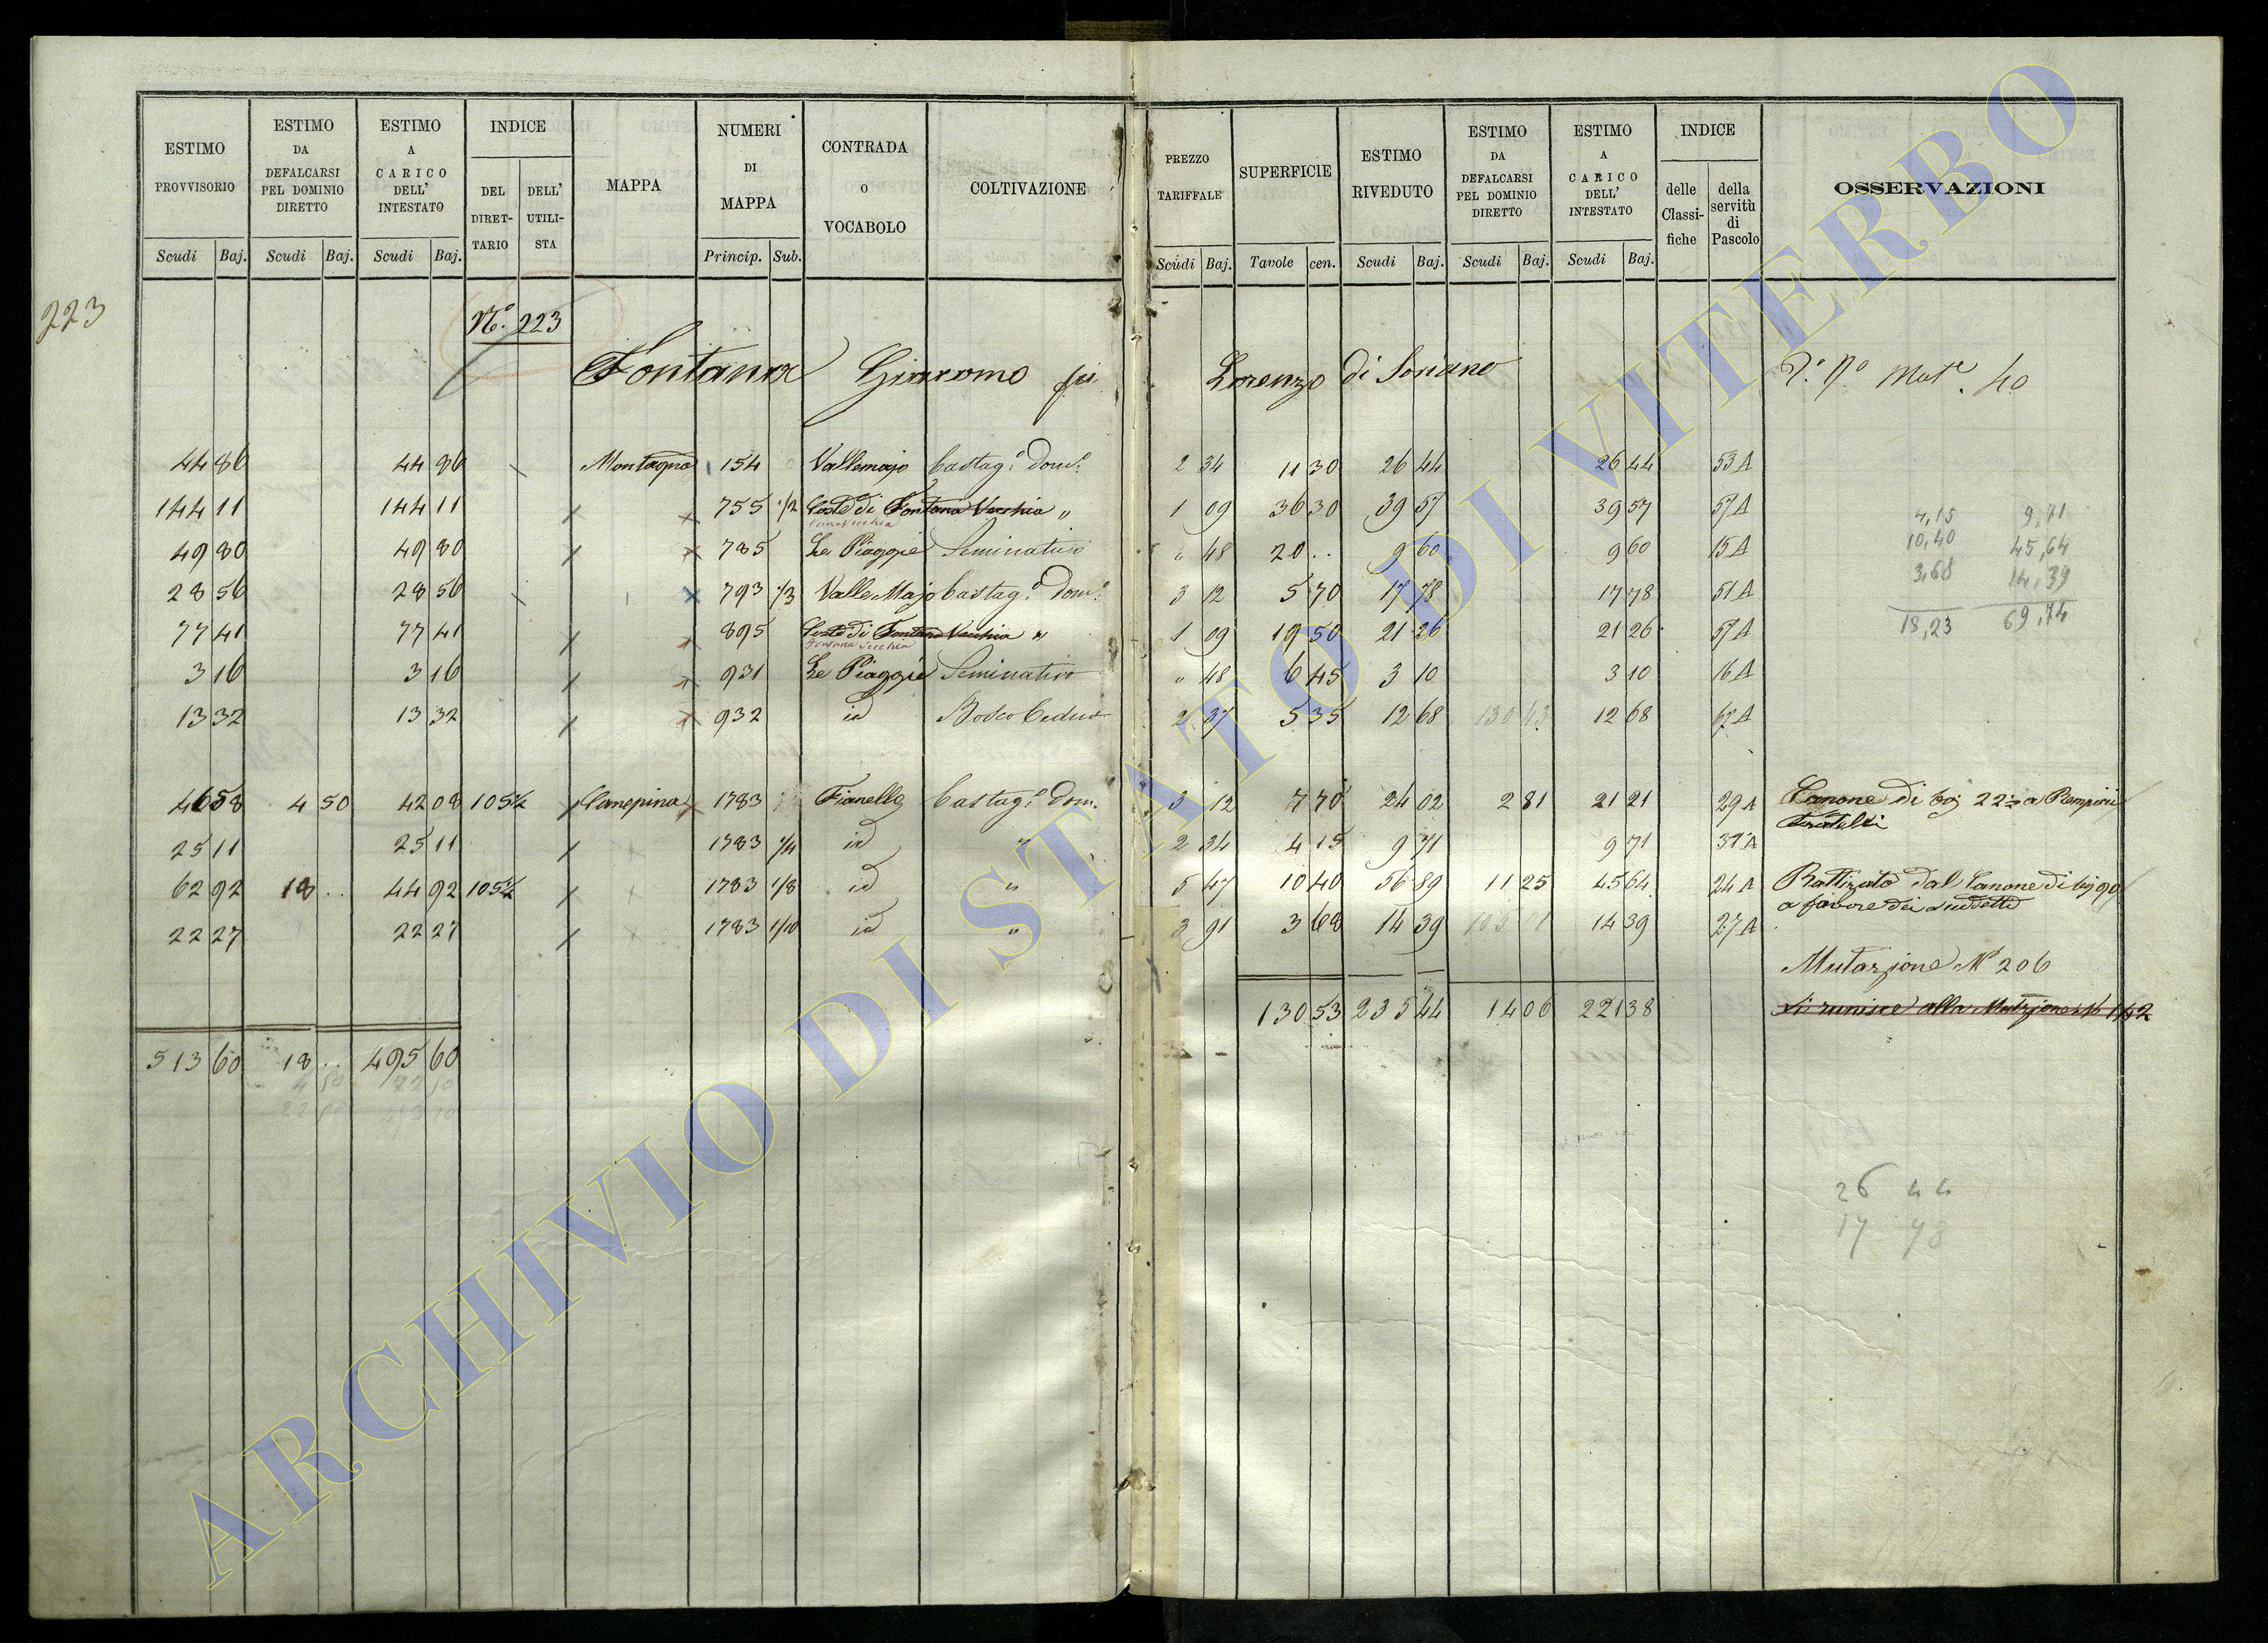 ESTIMO PROVVISORIO
ESTIMO DA DEFALCARSI PEL DOMINIO DIRETTO
ESTIMO A CARICO DELL' INTESTATO
INDICE
DEL DIRET-TARIO
DELL' UTILI-STA
MAPPA
NUMERI DI MAPPA
CONTRADA o VOCABOLO
COLTIVAZIONE
PREZZO TARIFFALE
SUPERFICIE
ESTIMO RIVEDUTO
ESTIMO DA DEFALCARSI PEL DOMINIO DIRETTO
ESTIMO A CARICO DELL' INTESTATO
INDICE
delle Classi-fiche
della servitù di Pascolo
OSSERVAZIONI
Scudi Baj. Scudi Baj. Scudi Baj. Princip. Sub. Scudi Baj. Tavole cen. Scudi Baj. Scudi Baj. Scudi Baj.
223
N.º 223
Fontana Giacomo fu Lorenzo di Soriano
Mut.e 40
44 86 44 86 Montagna 154 Vallemajo Castag.o dom.o 2 34 11 30 26 44 26 44 53 A
144 11 144 11 755 1/2 Coste di Fontana Vecchia " 1 09 36 30 39 57 39 57 57 A
49 80 49 80 785 Le Piaggie Seminativo " 48 20 .. 9 60 9 60 15 A
28 56 28 56 793 1/3 Valle Majo Castag.o dom.o 3 12 5 70 17 78 17 78 51 A
77 41 77 41 895 Coste di Fontana Vecchia " 1 09 19 50 21 26 21 26 57 A
Fontana Vecchia
3 16 3 16 931 Le Piaggie Seminativo " 48 6 45 3 10 3 10 16 A
13 32 13 32 932 id Bosco Ceduo 2 37 5 35 12 68 130 43 12 68 67 A
4,15 9,71
10,40 45,64
3,68 14,39
18,23 69,74
46 58 4 50 42 08 105 1/2 Canepina 1783 Fianello Castag.o dom. 3 12 7 70 24 02 2 81 21 21 29 A Canone di baj 22 1/2 a Pempinii
Fratelli
25 11 25 11 1783 1/4 id " 2 34 4 15 9 71 9 71 31 A
62 92 18 .. 44 92 105 1/2 1783 1/8 id " 5 47 10 40 56 89 11 25 45 64 24 A Rattizzato dal Canone di baj 90
a favore dei suddetti
22 27 22 27 1783 1/10 id " 3 91 3 68 14 39 14 39 27 A
Mutazione Nº 206
130 53 235 44 14 06 221 38
Si riunisce alla Mutazione Nº 142
513 60 18 .. 495 60
4 50 22 10
26 44
17 78
ARCHIVIO DI STATO DI VITERBO